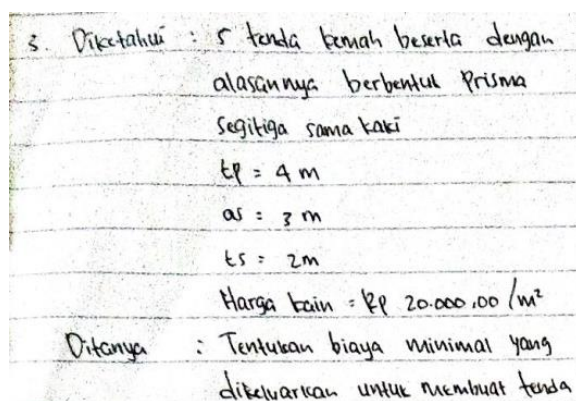 3. Diketahui : 5 tenda kemah beserta dengan
alasannya berbentuk Prisma
segitiga sama kaki
tp = 4 m
as = 3 m
ts = 2m
Harga kain = Rp 20.000,00 / m²
Ditanya : Tentukan biaya minimal yang
dikeluarkan untuk membuat tenda